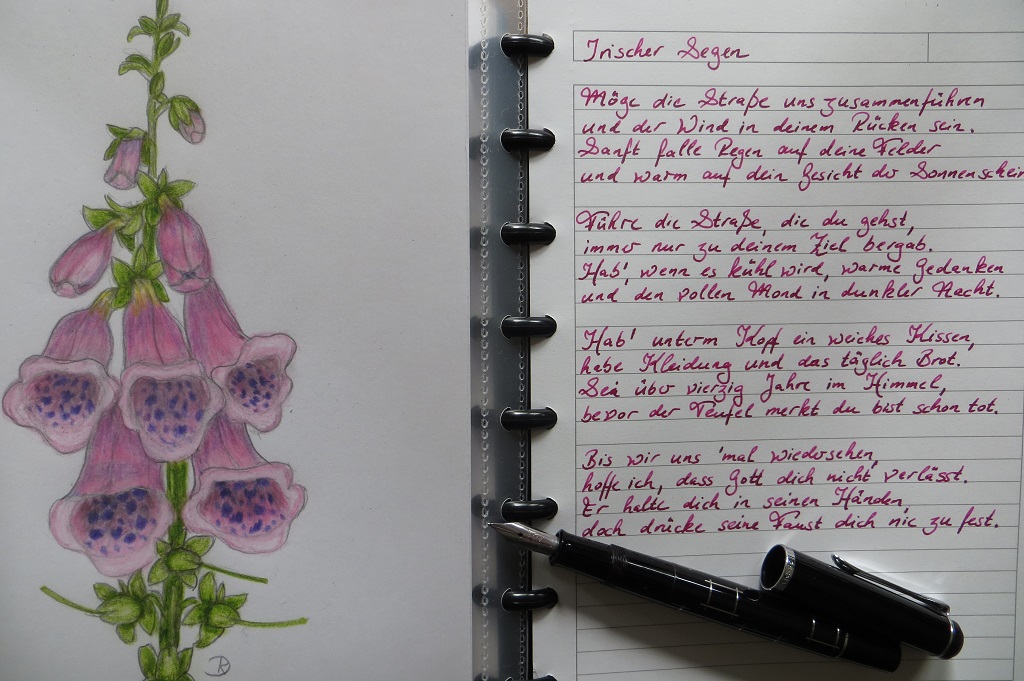 Irischer Segen
Möge die Straße uns zusammenführen
und der Wind in deinem Rücken sein.
Sanft falle Regen auf deine Felder
und warm auf dein Gesicht der Sonnenschein
Führe die Straße, die du gehst,
immer nur zu deinem Ziel bergab.
Hab', wenn es kühl wird, warme Gedanken
und den vollen Mond in dunkler Nacht.
Hab' unterm Kopf ein weiches Kissen,
habe Kleidung und das täglich Brot.
Sei über vierzig Jahre im Himmel,
bevor der Teufel merkt du bist schon tot.
Bis wir uns 'mal wiedersehen,
hoffe ich, dass Gott dich nicht verlässt.
Er halte dich in seinen Händen,
doch drücke seine Faust dich nie zu fest.